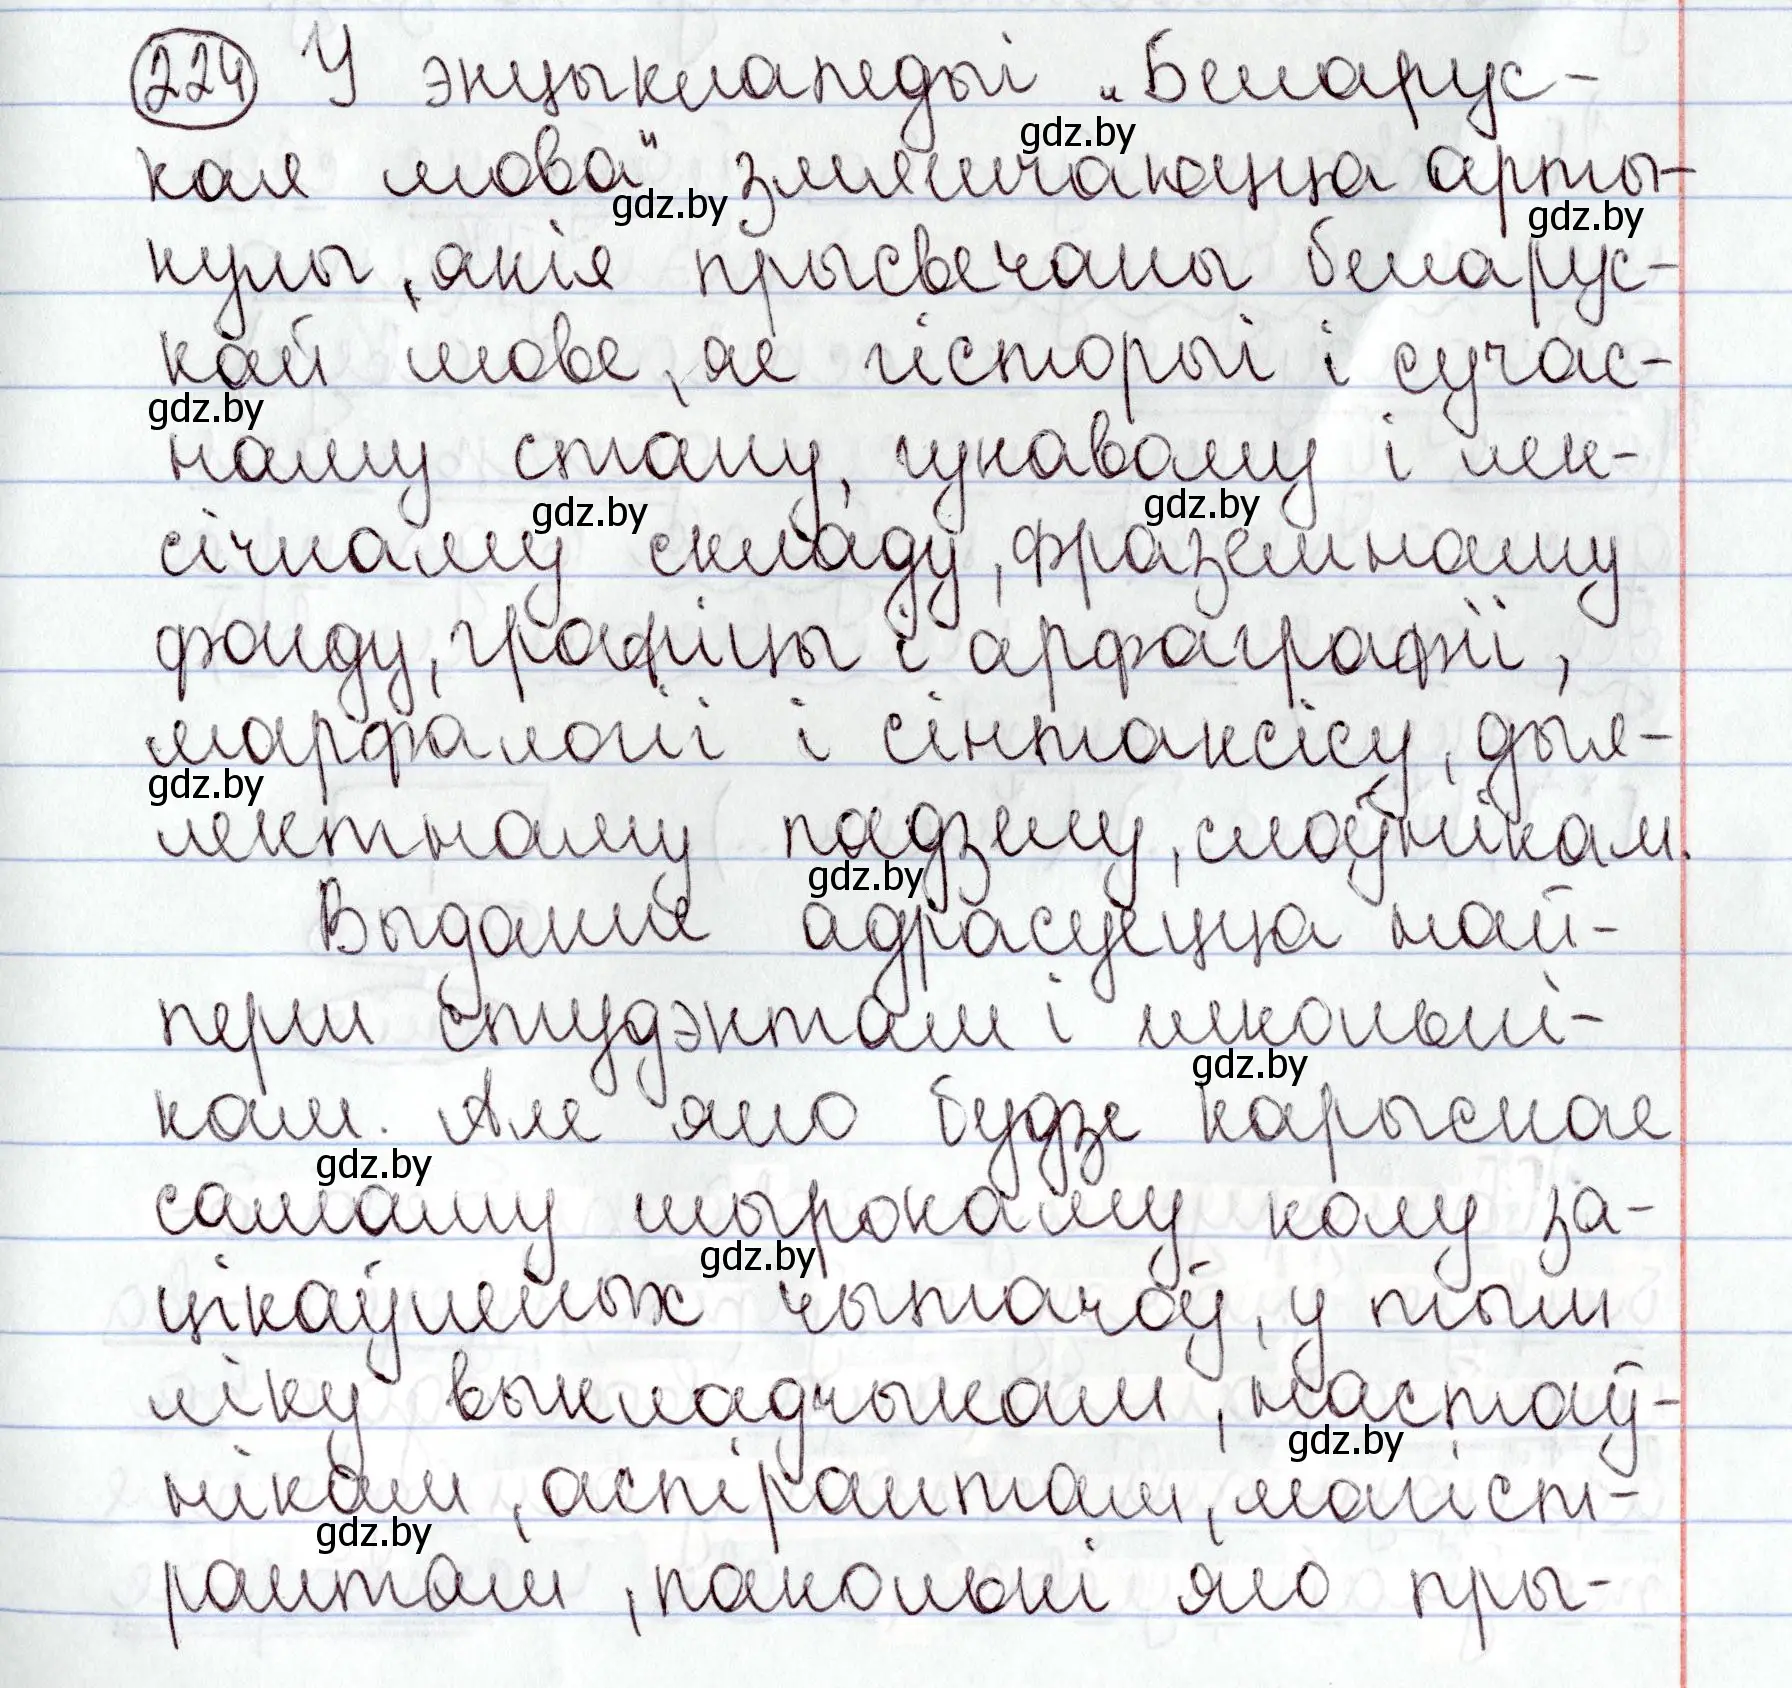 224 У энцыклапедыі „Беларус-
gdz.by
кая мова" змяшчаюцца арты-
gdz.by
gdz.by
кулы, якія прысвечаны беларус-
кай мове, яе гісторыі і сучас-
gdz.by
наму стану, гукавому і лек-
gdz.by
gdz.by
січнаму складу, фраземнаму
фонду, графіцы і арфаграфіі,
марфалогіі і сінтаксісу, дыя-
gdz.by
лектнаму падзелу, слоўнікам.
gdz.by
Выданне адрасуецца най-
перш студэнтам і школьні-
gdz.by
кам. Але яно будзе карыснае
gdz.by
самаму шырокаму колу за-
gdz.by
цікаўленых чытачоў, у тым
ліку выкладчыкам, настаў-
gdz.by
нікам, аспірантам, магіст-
gdz.by
рантам, паколькі яно пры-